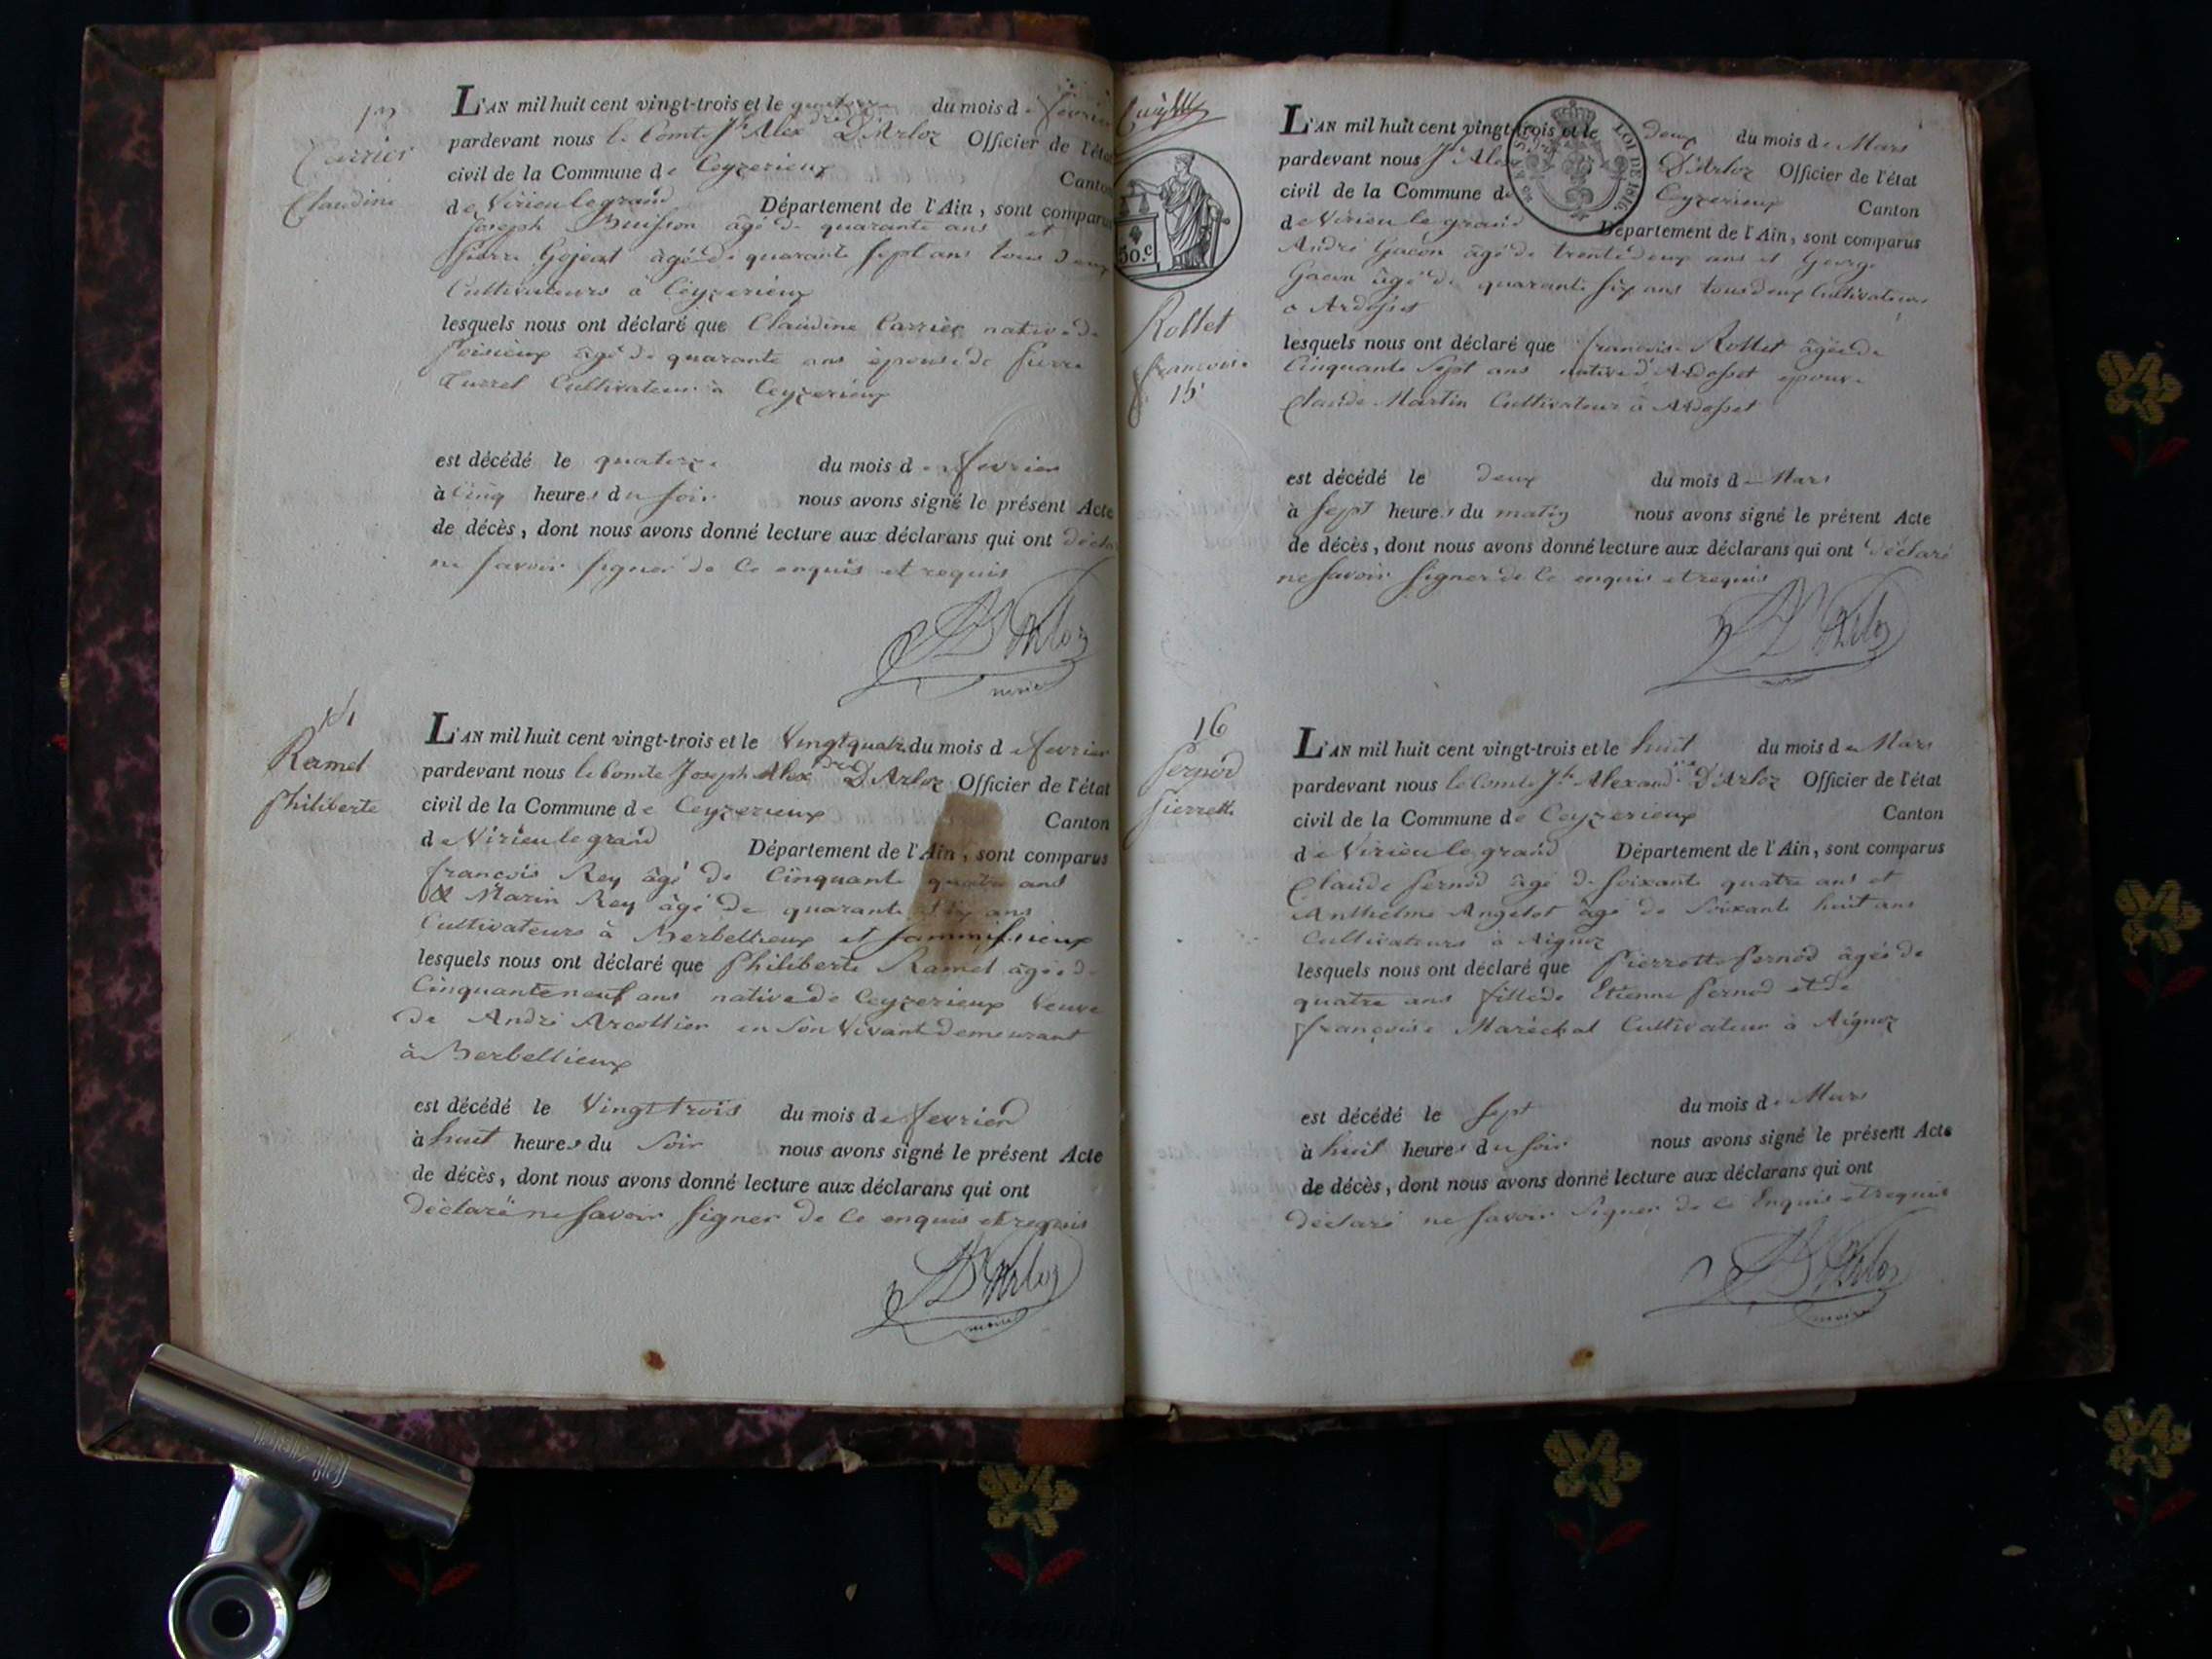 13
Carrier
Claudine
L'AN mil huit cent vingt-trois et le quatorze du mois de fevrier
pardevant nous le Comte Jh Alexdre D'Arloz Officier de l'état
civil de la Commune de Ceyzerieux Canton
de Virieu le grand Département de l'Ain, sont comparus
Joseph Buisson âgé de quarante ans et
Pierre Gojeat âgé de quarante sept ans tous deux
Cultivateurs à Ceyzerieux
lesquels nous ont déclaré que Claudine Carrier native de
âgé de quarante ans épouse de Pierre
Turrel Cultivateur à Ceyzerieux
est décédé le quatorze du mois de fevrier
à cinq heures du soir nous avons signé le présent Acte
de décès, dont nous avons donné lecture aux déclarans qui ont
ne savoir signer de ce enquis et requis
D'Arloz
maire
14
Ramel
Philiberte
L'AN mil huit cent vingt-trois et le Vingt quatre du mois de fevrier
pardevant nous le Comte Joseph Alexdre D'Arloz Officier de l'état
civil de la Commune de Ceyzerieux Canton
de Virieu le grand Département de l'Ain, sont comparus
francois Rey âgé de Cinquante quatre ans
& Marin Rey âgé de quarante six ans
Cultivateurs à Berbellieux et sammissieux
lesquels nous ont déclaré que Philiberte Ramel âgée de
Cinquante neuf ans native de Ceyzerieux Veuve
de André Arcollier en son Vivant demeurant
à Berbellieux
est décédé le Vingt trois du mois de fevrier
à huit heures du Soir nous avons signé le présent Acte
de décès, dont nous avons donné lecture aux déclarans qui ont
déclaré ne savoir signer de ce enquis et requis
D'Arloz
maire
50.c
LOI DE 1816
Rollet
francoise
15
L'AN mil huit cent vingt-trois et le deux du mois de Mars
pardevant nous Jh Alex D'Arloz Officier de l'état
civil de la Commune de Ceyzerieux Canton
de Virieu le grand Département de l'Ain, sont comparus
André Gacon âgé de trente deux ans et George
Gacon âgé de quarante six ans tous deux Cultivateurs
à Ardosset
lesquels nous ont déclaré que francoise Rollet âgée de
Cinquante Sept ans native d'Ardosset epouse
Claude Martin Cultivateur à Ardosset
est décédé le deux du mois de Mars
à sept heures du matin nous avons signé le présent Acte
de décès, dont nous avons donné lecture aux déclarans qui ont déclaré
ne savoir signer de ce enquis et requis
D'Arloz
16
Pernod
Pierrette
L'AN mil huit cent vingt-trois et le huit du mois de Mars
pardevant nous le Comte Jh Alexandre D'Arloz Officier de l'état
civil de la Commune de Ceyzerieux Canton
de Virieu le grand Département de l'Ain, sont comparus
Claude Pernod âgé de soixante quatre ans et
Anthelme Angelot âgé de Soixante huit ans
Cultivateurs à Aignoz
lesquels nous ont déclaré que Pierrette Pernod âgée de
quatre ans fille de Etienne Pernod et de
françoise Maréchal Cultivateur à Aignoz
est décédé le sept du mois de Mars
à huit heures du soir nous avons signé le présent Acte
de décès, dont nous avons donné lecture aux déclarans qui ont
déclaré ne savoir Signer de ce Enquis et requis
D'Arloz
maire